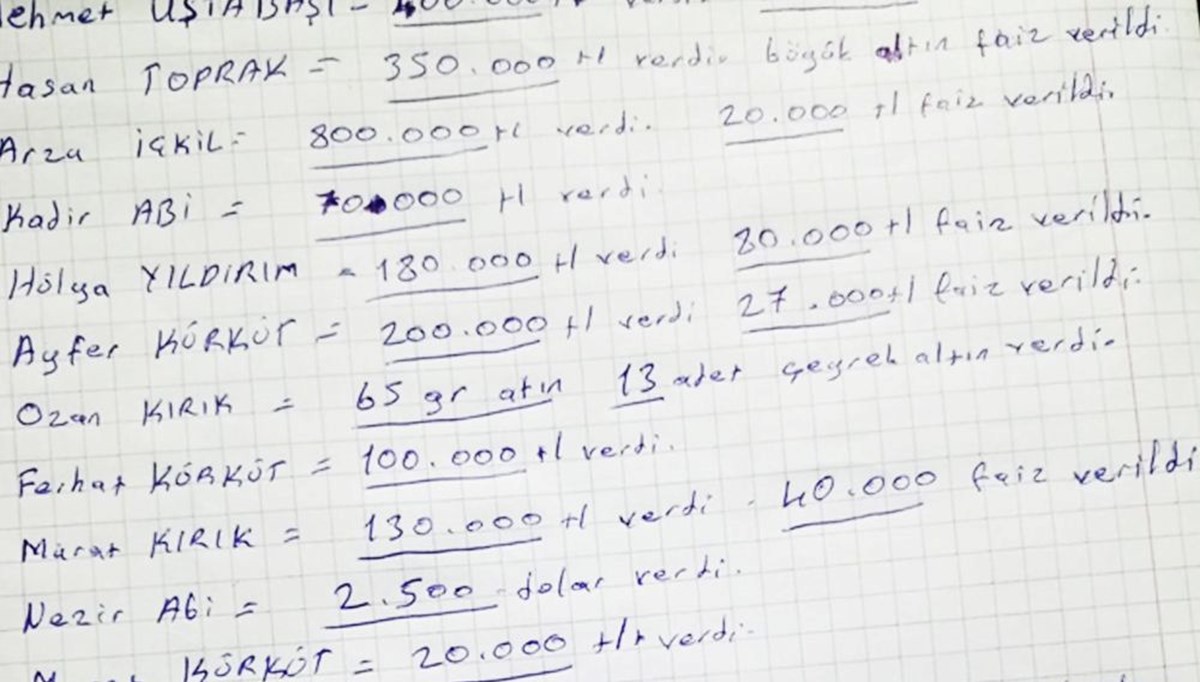 Mehmet USTABAŞI - 400.000
Hasan TOPRAK = 350.000 tl verdi. böyük altın faiz verildi.
Arzu İÇKİL = 800.000 tl verdi. 20.000 tl faiz verildi.
Kadir ABİ = 70.000 tl verdi.
Hülya YILDIRIM = 180.000 tl verdi. 80.000 tl faiz verildi.
Ayfer KÜRKÜT = 200.000 tl verdi 27.000 tl faiz verildi.
Ozan KIRIK = 65 gr atın 13 adet çeyrek altın verdi.
Ferhat KÜRKÜT = 100.000 tl verdi.
Murat KIRIK = 130.000 tl verdi. 40.000 faiz verildi
Nezir Abi = 2.500 dolar verdi.
KÜRKÜT = 20.000 verdi.